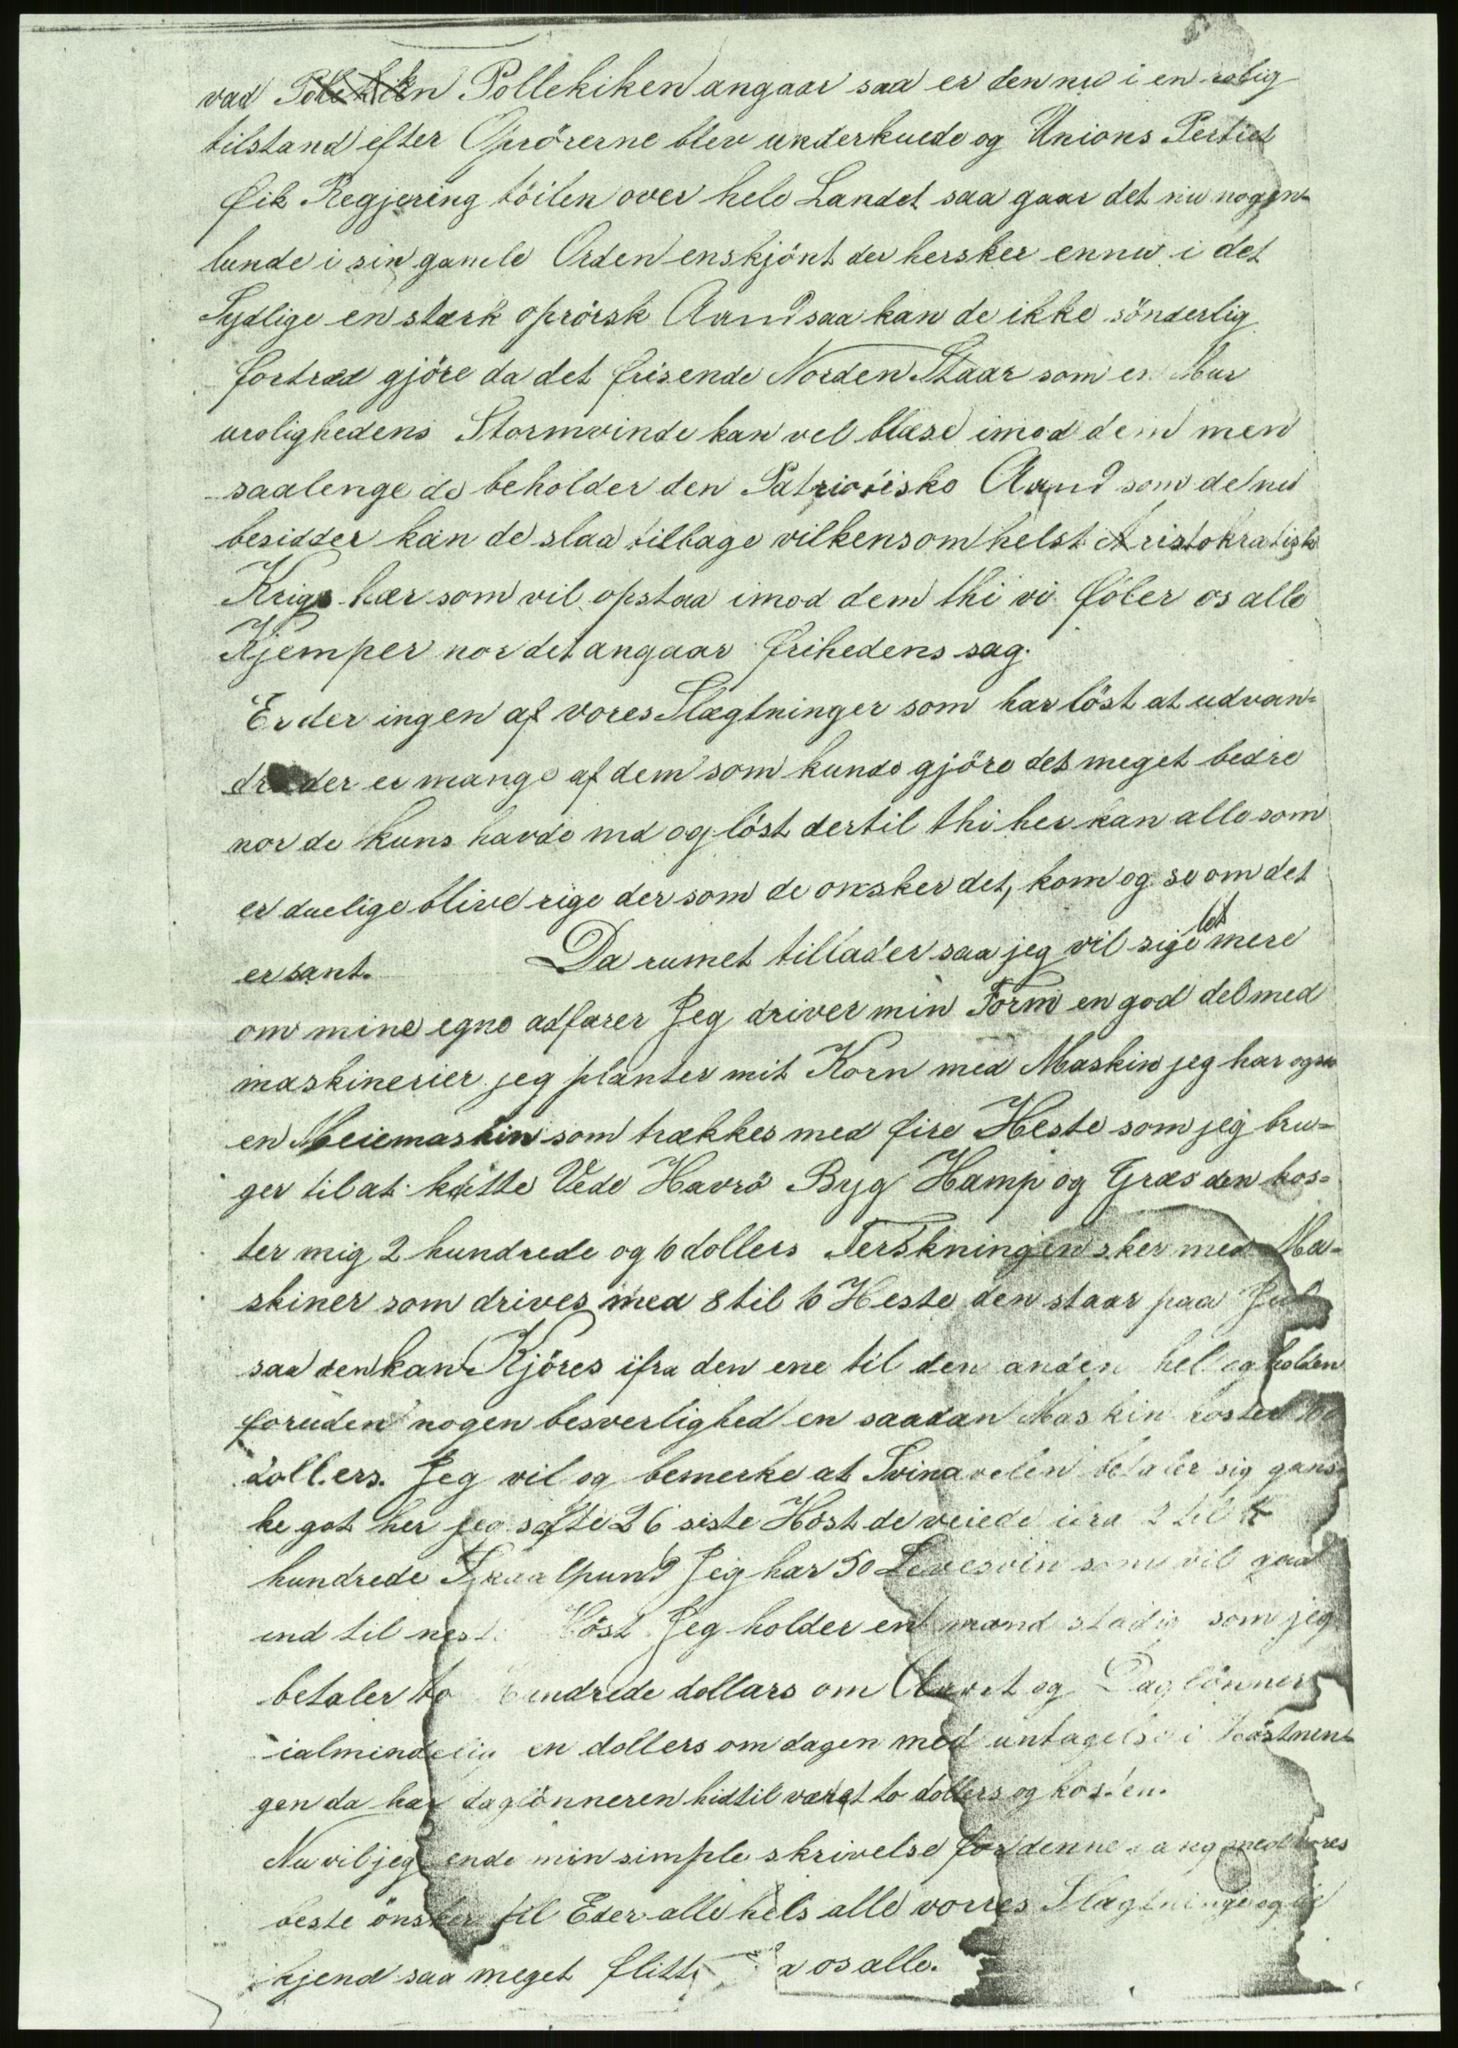 vad Pollekiken Pollekiken angaar saa er den nu i en rolig
tilstand efter Oprörerne blev underkuede og Unions Pertiet
fik Regjering töilen over hele Landet saa gaar det nu nogen-
lunde i sin gamle Orden enskjönt der hersker ennu i det
Sydlige en stærk oprörsk Aand saa kan de ikke sönderlig
fortræd gjöre da det frisende Norden Staar som en Mur
urolighedens Stormvinde kan vel blæse imod dem men
saalenge de beholder den Patriotiske Aand som de nu
besidder kan de slaa tilbage vilkensomhelst Aristokratisk
Krigs hær som vil opstaa imod dem thi vi föler os alle
Kjemper nor det angaar frihedens sag.
Er der ingen af vores Slægtninger som har löst at udvan-
dre der er mange af dem som kunde gjöre det meget bedre
nor de kuns havde md og löst dertil thi her kan alle som
er duelige blive rige der som de onsker det, kom og se om det
er sant. Da rumet tillader saa jeg vil sige let mere
om mine egne adfærer Jeg driver min Form en god del med
maskinerier jeg planter mit Korn med Maskin jeg har ogsaa
en Meiemaskin som trækkes med fire Heste som jeg bru-
ger til at kutte Vede Havre Byg Hamp og Græs den kos-
ter mig 2 hundrede og 10 dollers Terskningen sker med Ma-
skiner som drives med 8 til 10 Heste den staar paa Jul
saa den kan Kjöres ifra den ene til den anden hel og holden
foruden nogen besverlighed en saadan Maskin koster
dollers. Jeg vil og bemerke at Svinavelen betaler sig gans-
ke got her jeg solte 26 siste Höst de veiede ifra 2 til 4
hundrede Skaalpund Jeg har 50 Levesvin som vil gaa
ind til nest Höst Jeg holder en mand stadig som jeg
betaler to hundrede dollars om Aaret og Daglönner
ialmindelig en dollers om dagen med untagelse i Höstnen-
gen da har daglönneren hidtil været to dollers og kosten.
Nu vil jeg ende min simple skrivelse for denne gang med vores
beste önsker til Eder alle hels alle vorres Slægtninge og
kjend saa meget flitti fra os alle.